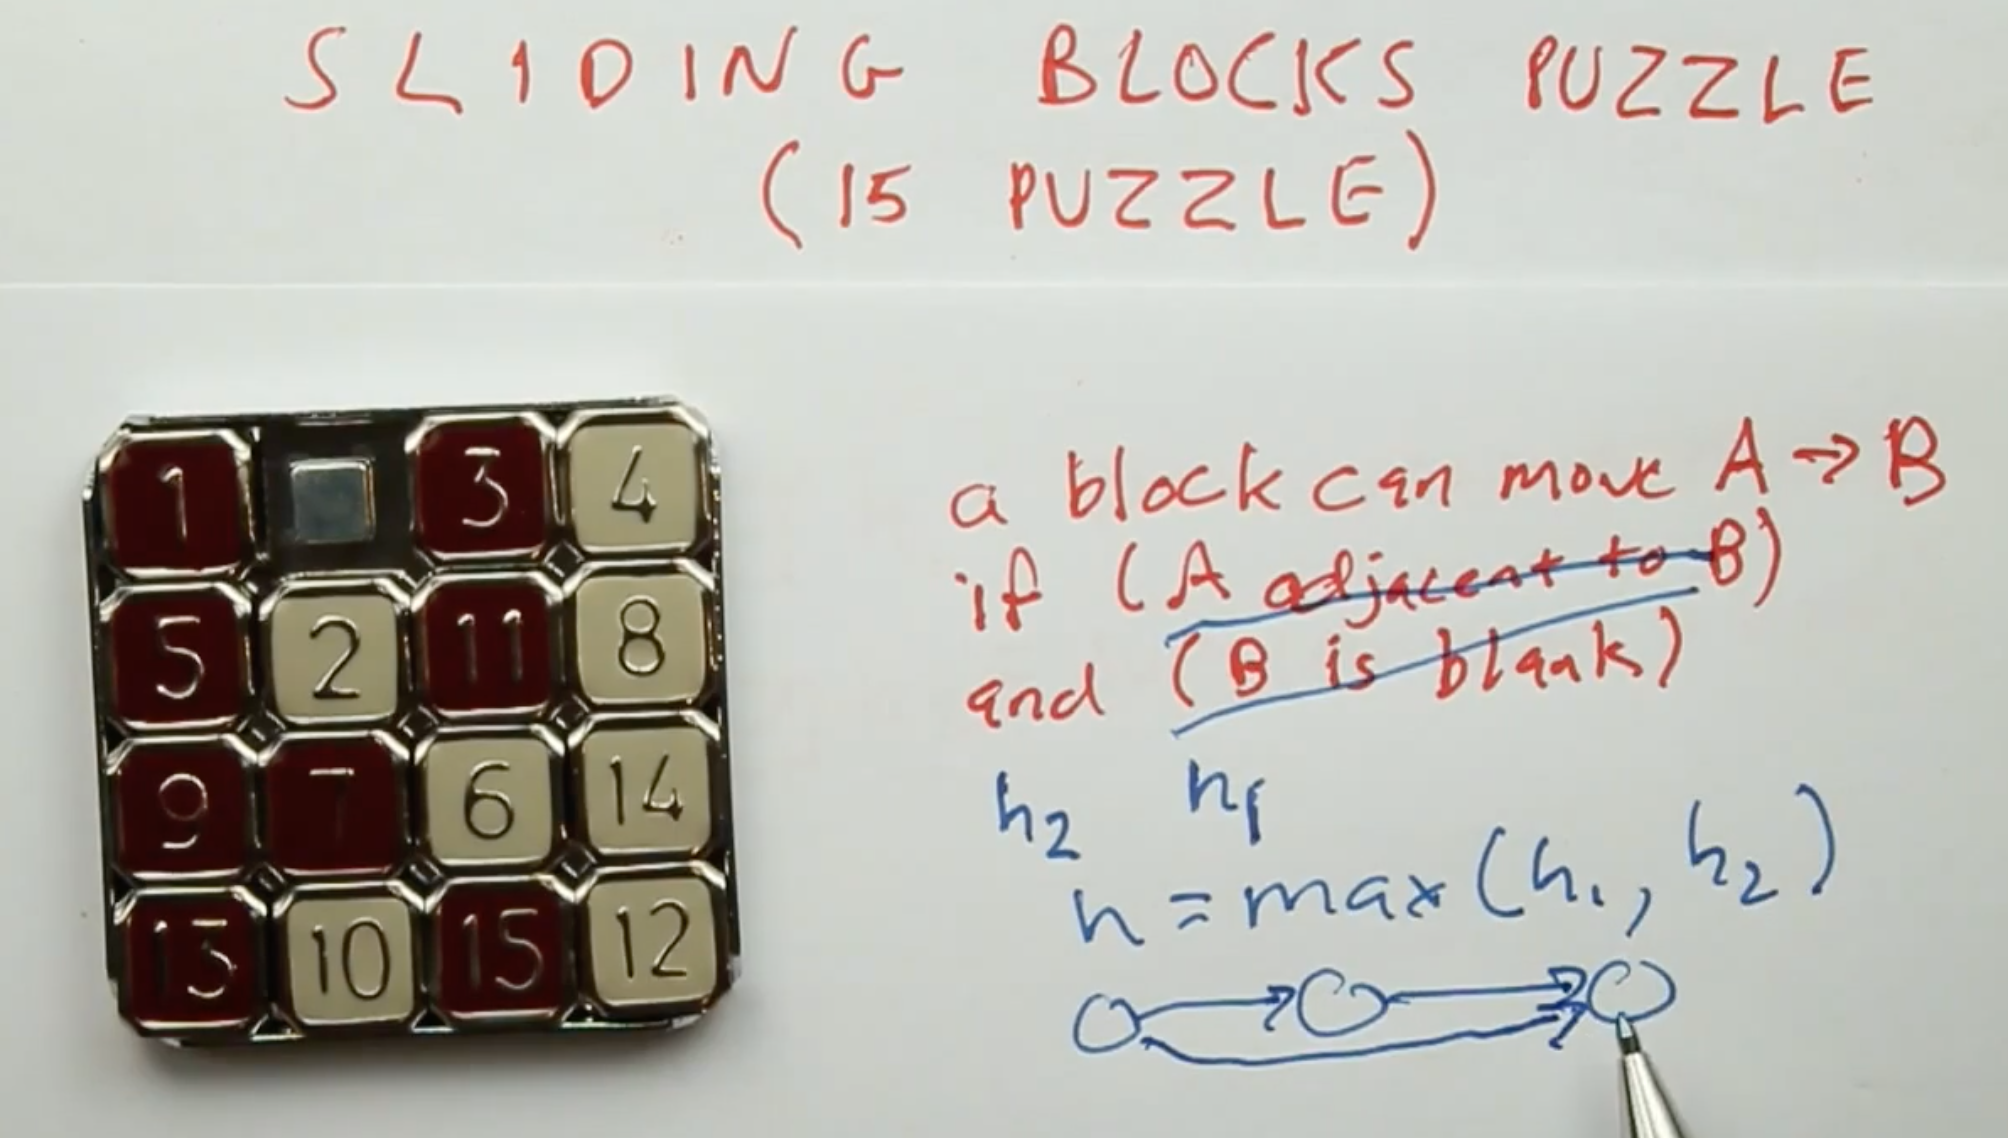 SLIDING BLOCKS PUZZLE
(15 PUZZLE)
1 3 4
5 2 11 8
9 7 6 14
13 10 15 12
a block can move A → B
if (A adjacent to B)
and (B is blank)
h2 h1
h = max(h1, h2)